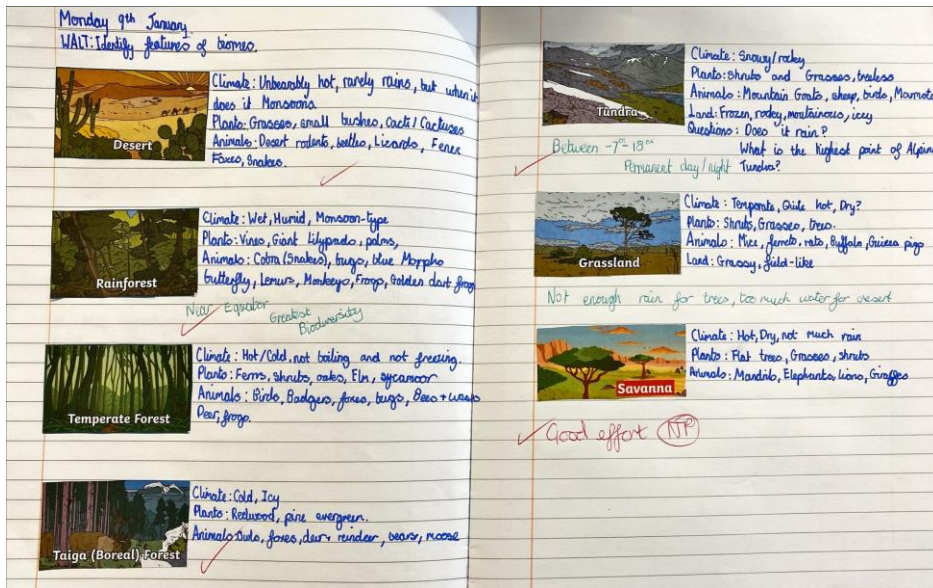 Monday 9th January
WALT: Identify features of biomes.
Desert
Climate: Unbearably hot, rarely rains, but when it
does it Monsoons
Plants: Grasses, small bushes, Cacti/Cactuses
Animals: Desert rodents, beetles, Lizards, Fenex
Foxes, Snakes.
Rainforest
Climate: Wet, Humid, Monsoon-type
Plants: Vines, Giant lilypads, palms,
Animals: Cobra (Snakes), bugs, blue Morpho
butterfly, Lemurs, Monkeys, Frogs, Golden dart frog
Near Equator
Greatest
Biodiversity
Temperate Forest
Climate: Hot/Cold, not boiling and not freezing.
Plants: Ferns, shrubs, oaks, Elm, sycamoor
Animals: Birds, Badgers, foxes, bugs, Bees +
Deer, frogs.
Taiga (Boreal) Forest
Climate: Cold, Icy
Plants: Redwood, pine evergreen.
Animals: Owls, foxes, deer + reindeer, bears, moose
Tundra
Climate: Snowy/rocky
Plants: Shrubs and Grasses, treeless
Animals: Mountain Goats, sheep, birds, Marmots
Land: Frozen, rocky, moutainous, icey
Questions: Does it rain?
What is the highest point of Alpine
Tundra?
Between -7°- 
Permanent day/night
Grassland
Climate: Temperate, Quite hot, Dry?
Plants: Shrubs, Grasses, trees.
Animals: Mice, ferrets, rats, Buffalo, Guinea pigs
Land: Grassy, field-like
Not enough rain for trees, too much water for desert
Savanna
Climate: Hot, Dry, not much rain
Plants: Flat trees, Grasses, shrubs
Animals: Mandrils, Elephants, lions, Giraffes
Good effort NP